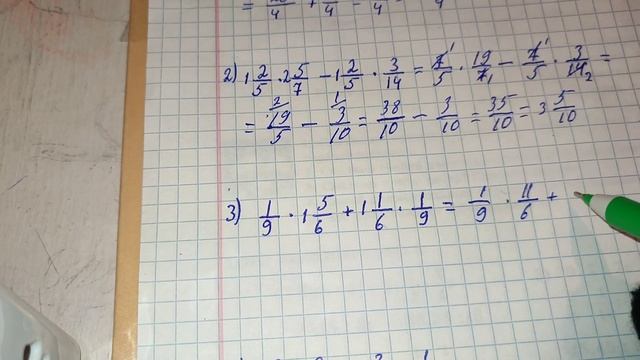 2) 1 2/5 · 2 5/7 − 1 2/5 · 3/14 = 7/5 · 19/7 − 7/5 · 3/14 =
= 19/5 − 3/10 = 38/10 − 3/10 = 35/10 = 3 5/10
3) 1/9 · 1 5/6 + 1 1/6 · 1/9 = 1/9 · 11/6 +